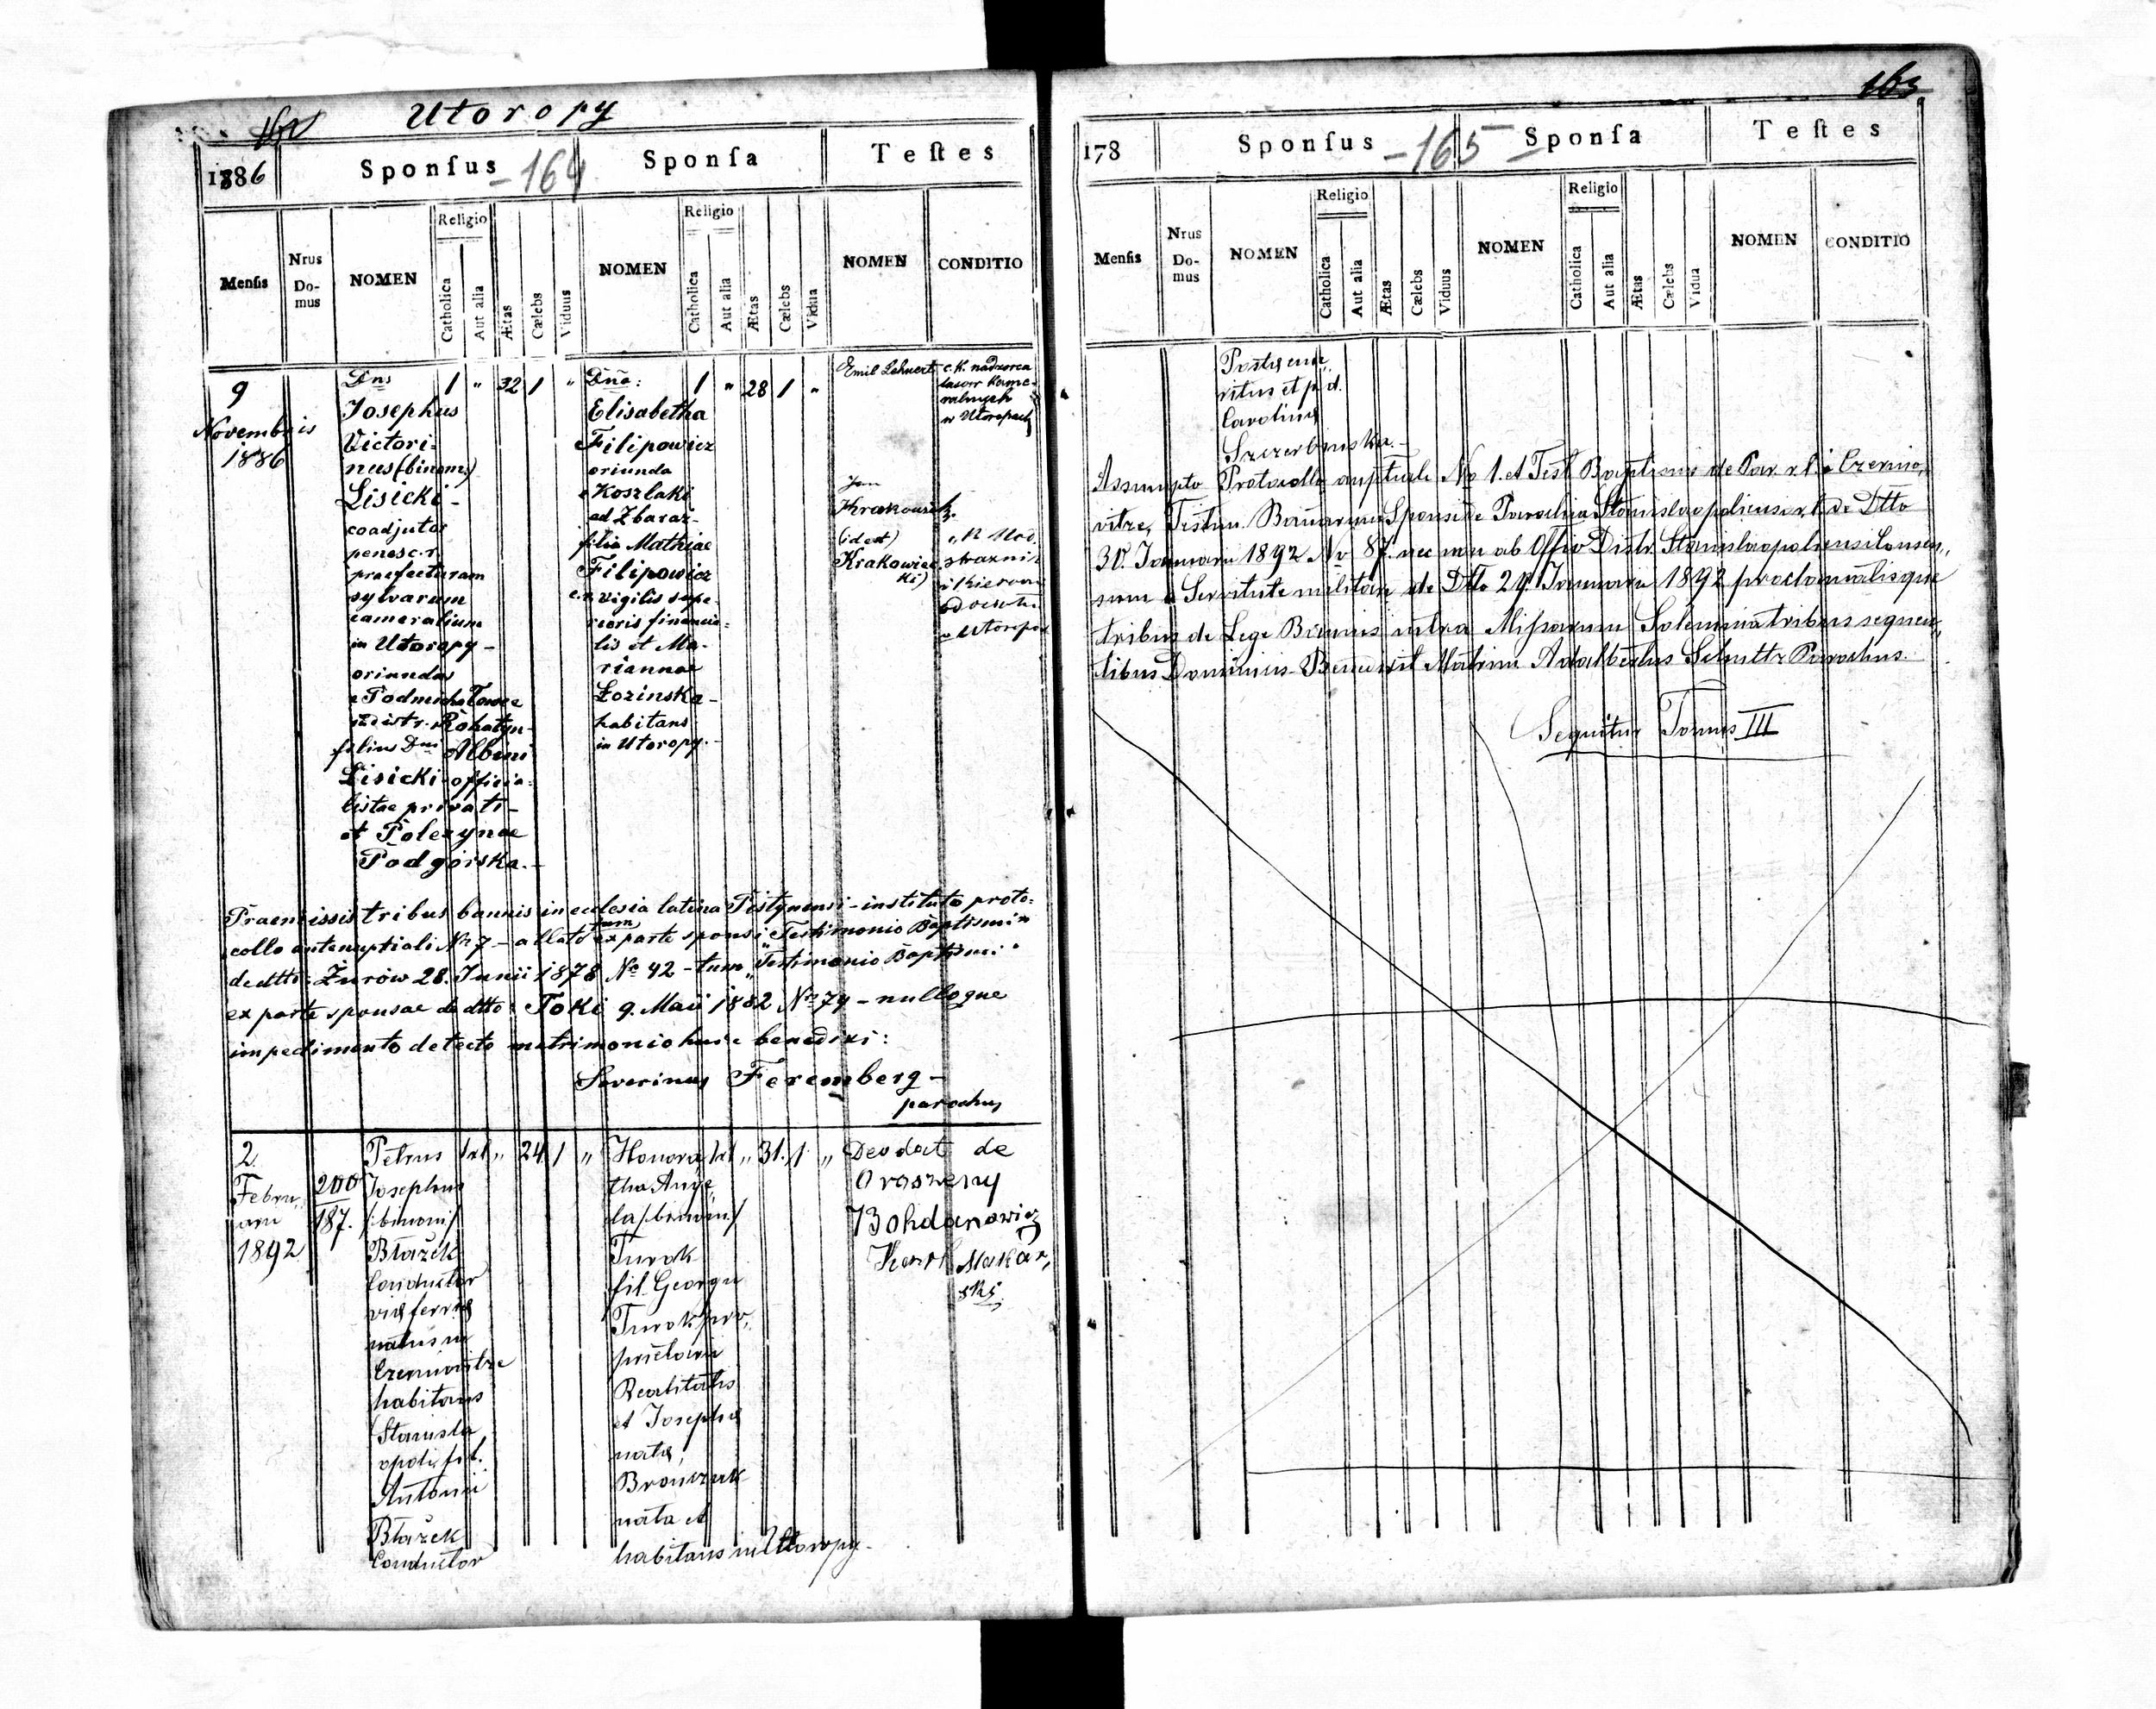 Utoropy
1886
Sponſus
164
Sponſa
Teſtes
Menſis
Nrus Domus
NOMEN
Religio
Catholica
Aut alia
Ætas
Cælebs
Viduus
NOMEN
Religio
Catholica
Aut alia
Ætas
Cælebs
Vidua
NOMEN
CONDITIO
9
Novembris
1886
Dns
Josephus
Victori-
nus (binom:)
Lisicki -
coadjutor
penes c. r.
praefecturam
sylvarum
cameralium
in Utoropy -
oriundus
e Podmichałowce
distr. Rohatyn -
filius Dni Albini
Lisicki officia-
listae privati -
et Polexynae
Podgórska. -
1 " 32 1 "
Dna:
Elisabetha
Filipowicz
oriunda
e Koszlaki
ad Zbaraż -
filia Mathiae
Filipowicz
c. r. vigilis supe-
rioris financia-
lis et Ma-
riannae
Łozinska -
habitans
in Utoropy. -
1 " 28 1 "
Emil Lehnert
c. k. nadzorca
lasów kame-
ralnych
w Utoropach
Jan
Krakowick
(idest)
Krakowiec
ki)
Praemissis tribus bannis in ecclesia latina Pistynensi - instituto proto-
collo antenuptiali Nr 7 - allato tum ex parte sponsi „Testimonio Baptismi"
de dtto: Żurów 28. Junii 1878 No 42 - tum „Testimonio Baptismi"
ex parte sponsae de dtto: Toki 9. Maii 1882 Nr 74 - nulloque
impedimento detecto matrimonio huic benedixi:
Severinus Feremberg -
parochus
2.
Febru
arii
1892
200
187.
Petrus
Josephus
/:binom:/
Błażek
Conductor
viæ ferreæ
natus in
Czerniovitze
habitans
Stanisla
opoli, fil.
Antonii
Błażek
Conductor
24 1 "
Honora
tha Ange
la /:binom:/
Turok
fil. Georgii
Turok pro,
prietarii
Realitatis
et Josephæ
natæ
Bronczuk
nata et
habitans in Utoropy.
31. 1. "
Deodat de
Oroszeny
Bohdanowicz
Karol Makar,
ski
163
178
Sponſus
165
Sponſa
Teſtes
Menſis
Nrus Domus
NOMEN
Religio
Catholica
Aut alia
Ætas
Cælebs
Viduus
NOMEN
Religio
Catholica
Aut alia
Ætas
Cælebs
Vidua
NOMEN
CONDITIO
Carolinæ
Szczerbinska. -
Assumpto Protocollo nuptiali No 1. et Test Baptismi de Par. r. l. à Czernio,
vitze, Testim. Bannorum Sponsi de Parochia Stanislaopoliensi r. l. de Dtto
30. Januarii 1892 No 87. nec non ab Offio Distr. Stanislaopoliensi Consen,
sum a Servitute militari de Dtto 29. Januarii 1892 proclamatisque
tribus de Lege Bannis intra Missarum Solemnia tribus sequen,
tibus Dominicis - Benedixit Matrim. Adalbertus Schultz Parochus.
Sequitur Tomus III